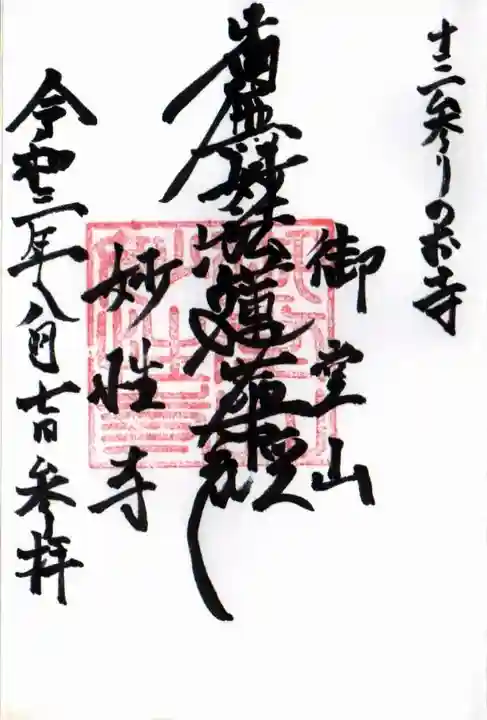 十三参りのお寺
御堂山
南無妙法蓮華経
妙性寺
令和二年八月七日参拝